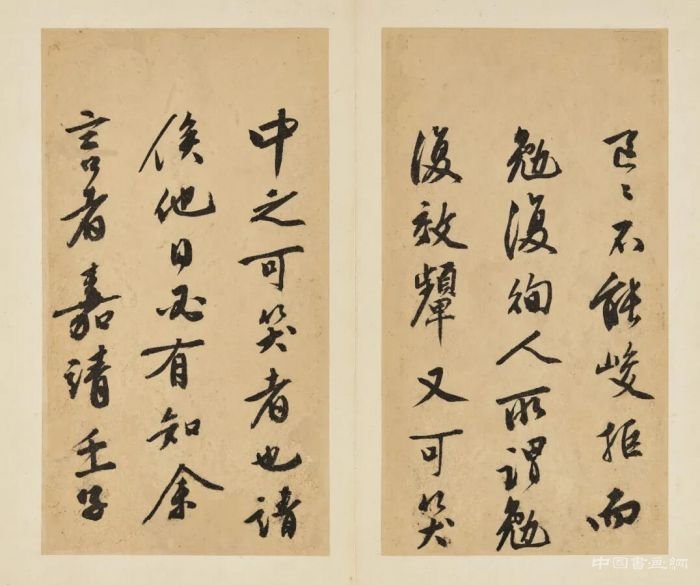 區〻不能峻拒而
勉復徇人所謂勉
復效顰又可笑
中之可笑者也請
俟他日必有知余
言者嘉靖壬子
中国書画網